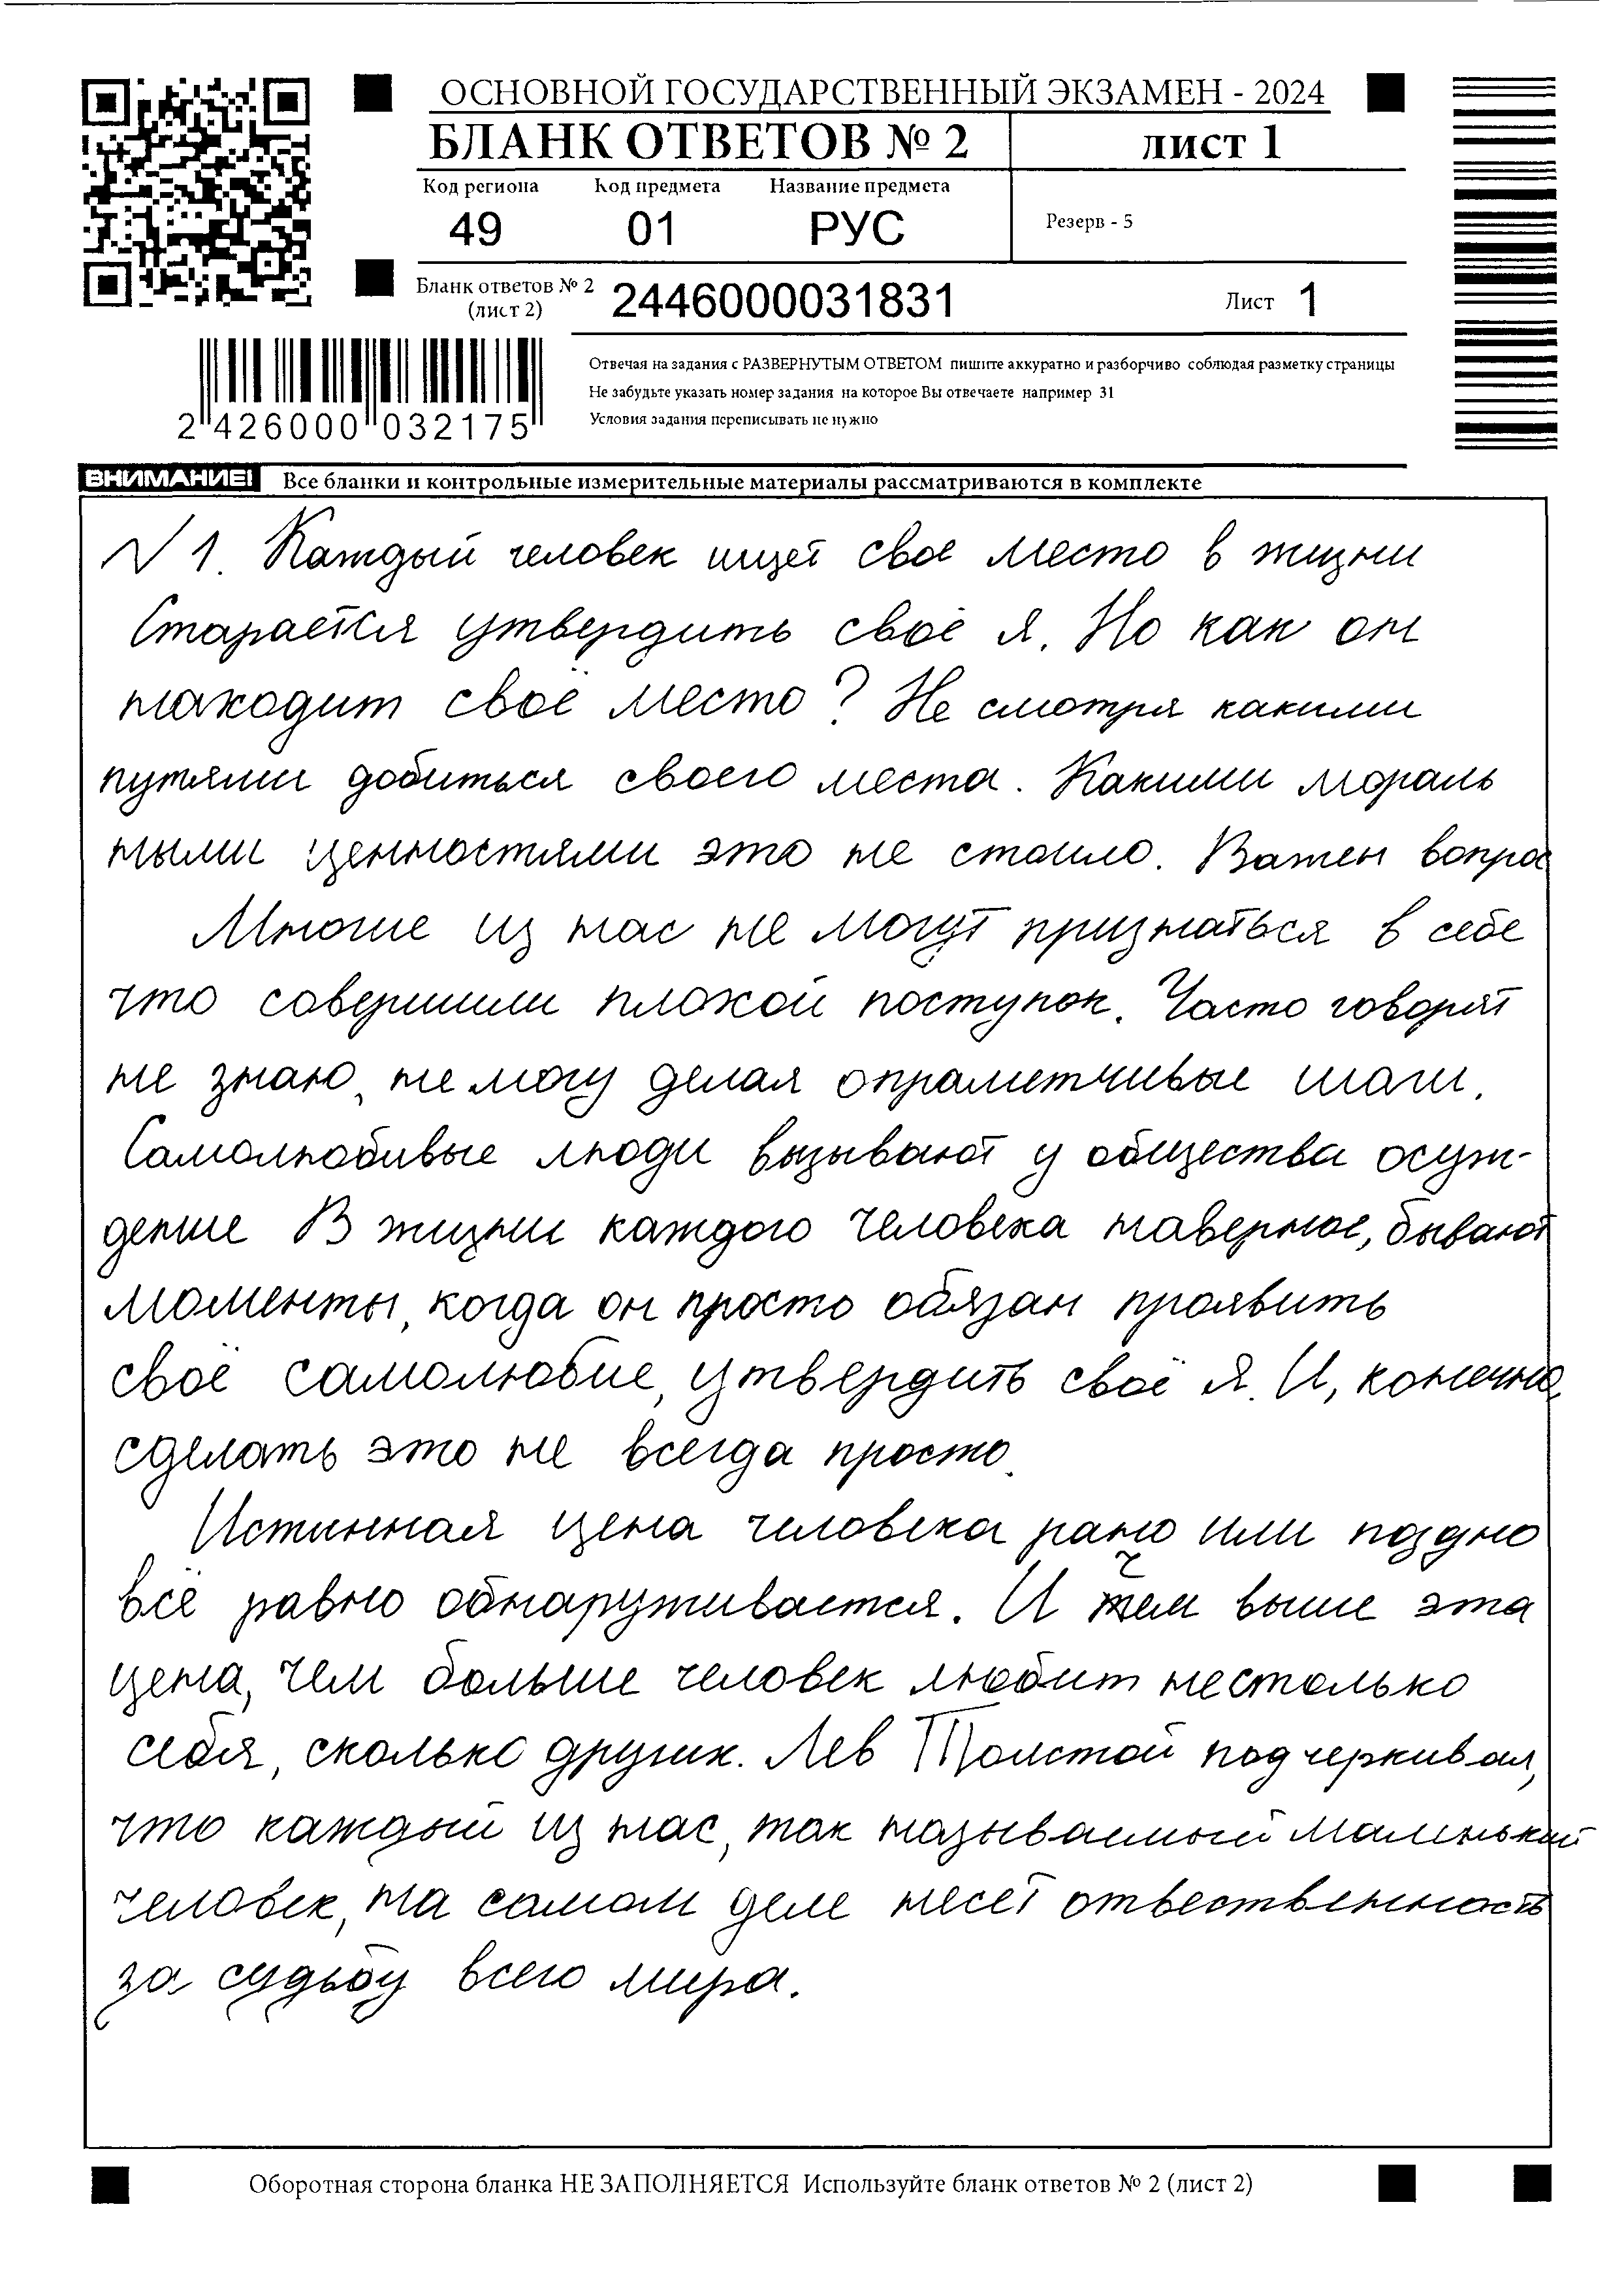 ОСНОВНОЙ ГОСУДАРСТВЕННЫЙ ЭКЗАМЕН - 2024
БЛАНК ОТВЕТОВ № 2
лист 1
Код региона Код предмета Название предмета
49 01 РУС
Резерв - 5
Бланк ответов № 2
(лист 2)
2446000031831
Лист 1
Отвечая на задания с РАЗВЕРНУТЫМ ОТВЕТОМ пишите аккуратно и разборчиво соблюдая разметку страницы
Не забудьте указать номер задания на которое Вы отвечаете например 31
Условия задания переписывать не нужно
2 426000 032175
ВНИМАНИЕ! Все бланки и контрольные измерительные материалы рассматриваются в комплекте
№ 1. Каждый человек ищет свое место в жизни
Старается утвердить своё я. Но как он
находит своё место? Не смотря какими
путями добиться своего места. Какими мораль
ными ценностями это не стоило. Важен вопрос
Многие из нас не могут признаться в себе
что совершили плохой поступок. Часто говорят
не знаю, не могу делая опрометчивые шаги.
Самолюбивые люди вызывают у общества осуж-
дение В жизни каждого человека наверное, бывают
моменты, когда он просто обязан проявить
своё самолюбие, утвердить своё я. И, конечно,
сделать это не всегда просто.
Истинная цена человека рано или поздно
всё равно обнаруживается. И чем выше эта
цена, чем больше человек любит нестолько
себя, сколько других. Лев Толстой подчеркивал,
что каждый из нас, так называемый маленький
человек, на самом деле несёт отвественность
за судьбу всего мира.
Оборотная сторона бланка НЕ ЗАПОЛНЯЕТСЯ Используйте бланк ответов № 2 (лист 2)